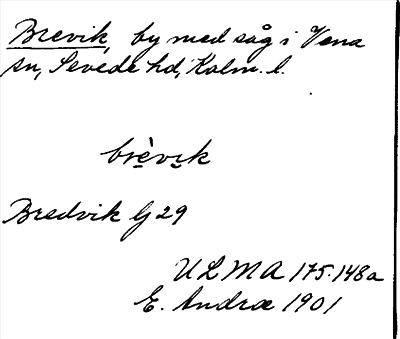 Brevik, by med såg i Vena
sn, Sevede hd, Kalm. l.
brèvik
Bredvik Lj 29
ULMA 175:148a
E. Andræ 1901